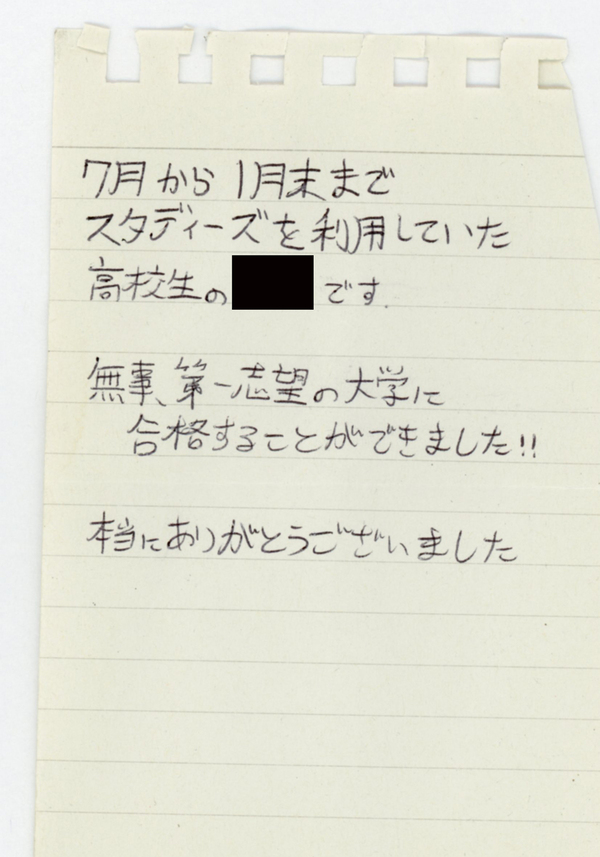 7月から1月末まで
スタディーズを利用していた
高校生の です.
無事、第一志望の大学に
合格することができました!!
本当にありがとうございました